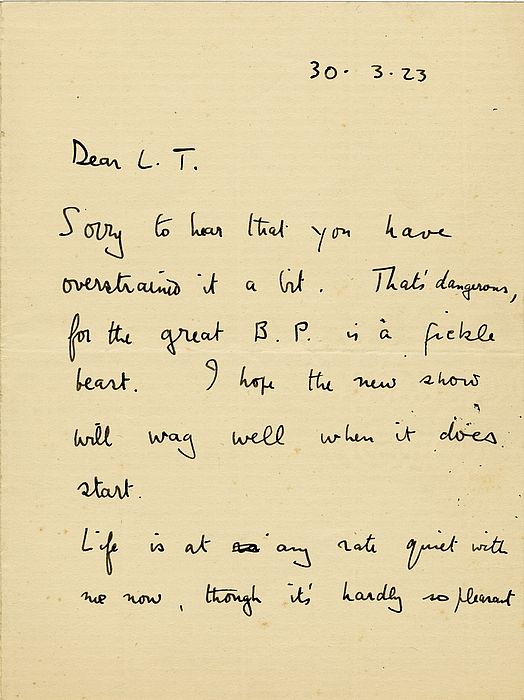 30. 3.23
Dear L. T.
Sorry to hear that you have
overstrained it a bit. That's dangerous,
for the great B. P. is a fickle
beast. I hope the new show
will wag well when it does
start.
Life is at any rate quiet with
me now, though it's hardly so pleasant